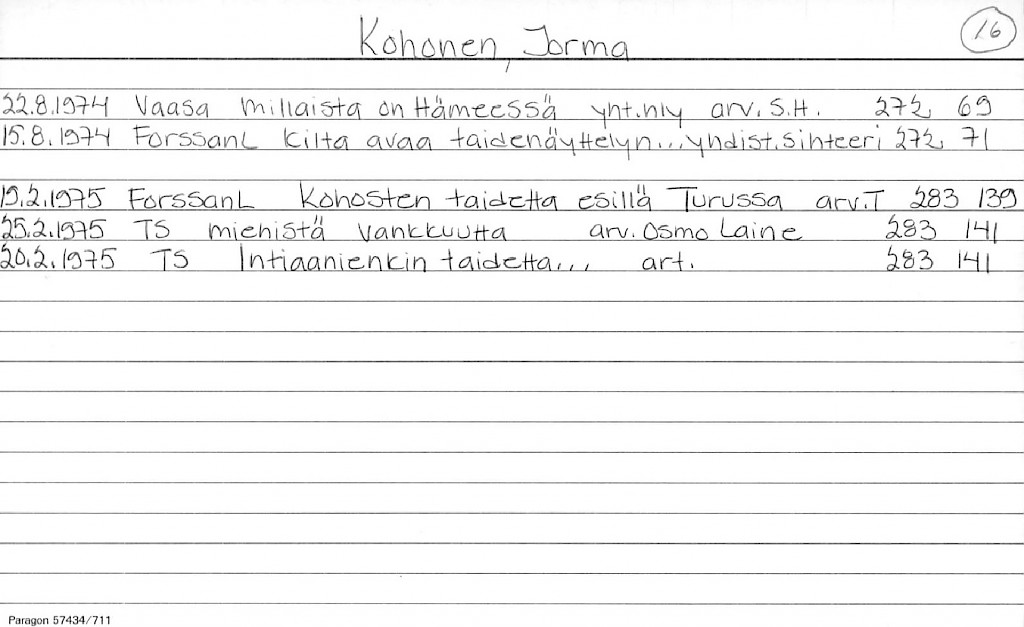 16
Kohonen, Jorma
22.8.1974 Vaasa Millaista on Hämeessä ynt.nly arv. S.H. 272, 69
15.8.1974 ForssanL Kilta avaa taidenäyttelyn... yhdist.sihteeri 272, 71
19.2.1975 ForssanL Kohosten taidetta esillä Turussa arv.T 283 139
25.2.1975 TS miehistä vankkuutta arv. Osmo Laine 283 141
20.2.1975 TS Intiaanienkin taidetta... art. 283 141
Paragon 57434/711